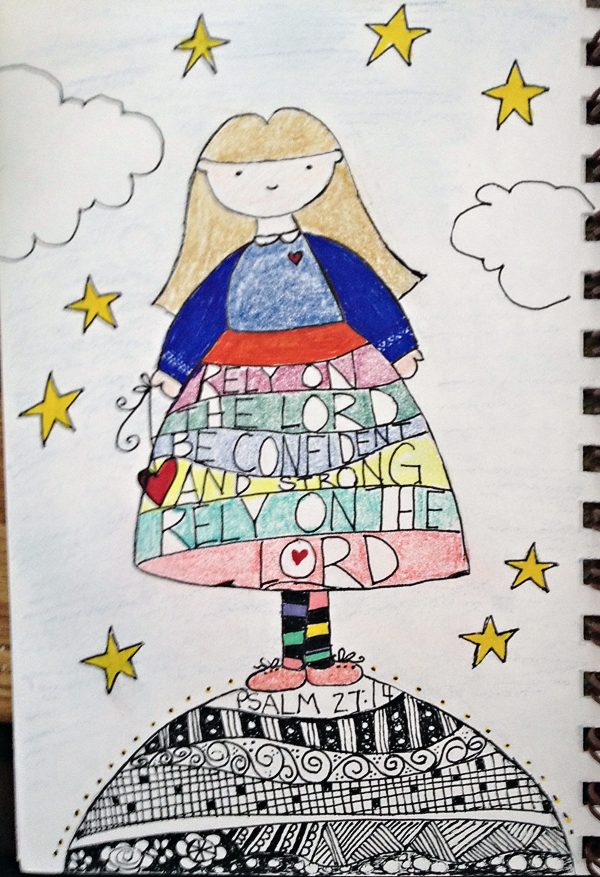 RELY ON
THE LORD
BE CONFIDENT
AND STRONG
RELY ON THE
LORD
PSALM 27:14